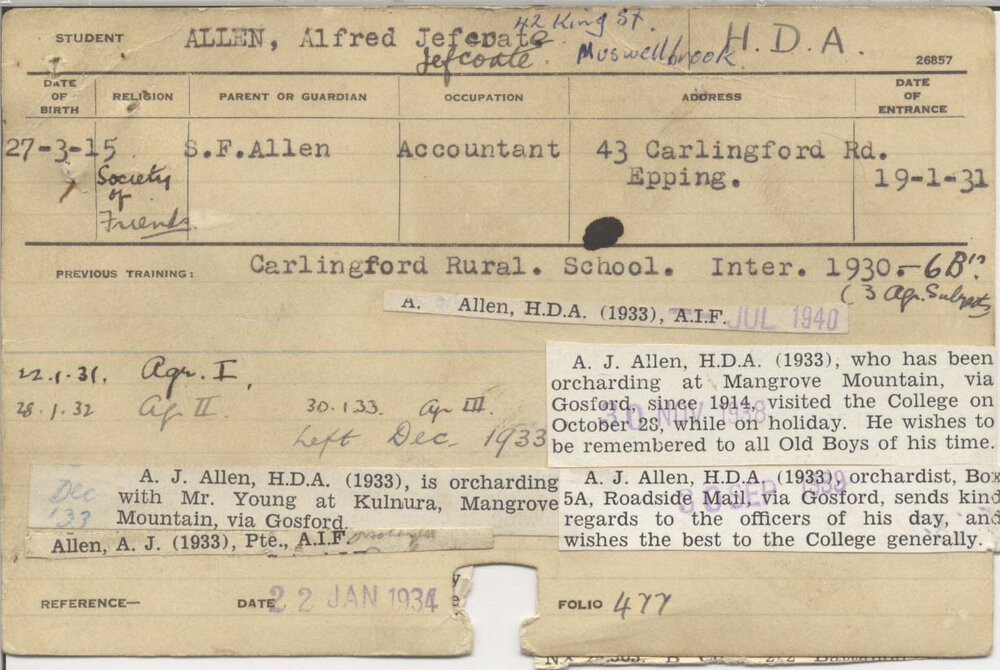 42 King St.
STUDENT ALLEN, Alfred Jefcoate H.D.A.
Jefcoate. Muswellbrook
26857
DATE OF BIRTH RELIGION PARENT OR GUARDIAN OCCUPATION ADDRESS DATE OF ENTRANCE
27-3-15 S.F.Allen Accountant 43 Carlingford Rd.
Society of Friends. Epping. 19-1-31
PREVIOUS TRAINING: Carlingford Rural. School. Inter. 1930.-6B's
(3 Agr. Subjects
A. Allen, H.D.A. (1933), A.I.F. JUL 1940
22.1.31. Agr. I.
28.1.32 Ag II. 30.1.33. Agr III.
Left Dec. 1933
A. J. Allen, H.D.A. (1933), who has been
orcharding at Mangrove Mountain, via
Gosford, since 1914, visited the College on
October 28, while on holiday. He wishes to
be remembered to all Old Boys of his time.
30 NOV 1938
A. J. Allen, H.D.A. (1933), is orcharding
with Mr. Young at Kulnura, Mangrove
Mountain, via Gosford.
Dec '33
A. J. Allen, H.D.A. (1933), orchardist, Box
5A, Roadside Mail, via Gosford, sends kind
regards to the officers of his day, and
wishes the best to the College generally.
SEP
Allen, A. J. (1933), Pte., A.I.F.
REFERENCE— DATE 22 JAN 1934 FOLIO 477